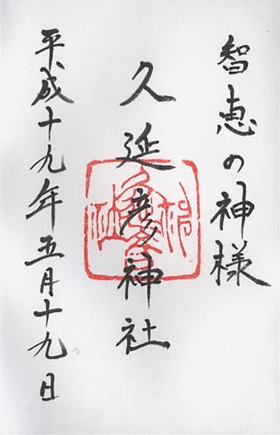 智恵の神様
久延彦神社
平成十九年五月十九日